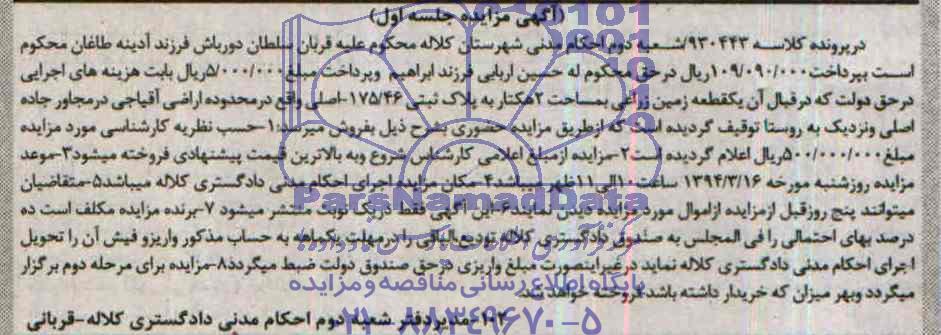 (آگهی مزایده جلسه اول)
درپرونده کلاسه ۹۳۰۴۴۳/شعبه دوم احکام مدنی شهرستان کلاله محکوم علیه قربان سلطان دورباش فرزند آدینه طاغان محکوم
است بپرداخت۱۰۹/۰۹۰/۰۰۰ریال درحق محکوم له حسین اربابی فرزند ابراهیم وپرداخت مبلغ۵/۰۰۰/۰۰۰ریال بابت هزینه های اجرایی
درحق دولت که درقبال آن یکقطعه زمین زراعی بمساحت ۲هکتار به پلاک ثبتی ۱۷۵/۴۶-اصلی واقع درمحدوده اراضی آقیاجی درمجاور جاده
اصلی ونزدیک به روستا توقیف گردیده است که ازطریق مزایده حضوری بشرح ذیل بفروش میرسد:۱-حسب نظریه کارشناسی مورد مزایده
مبلغ۵۰۰/۰۰۰/۰۰۰ریال اعلام گردیده است۲-مزایده ازمبلغ اعلامی کارشناس شروع وبه بالاترین قیمت پیشنهادی فروخته میشود۳-موعد
مزایده روزشنبه مورخه ۱۳۹۴/۳/۱۶ ساعت۱۰الی۱۱ظهر میباشد۴-مکان مزایده اجرای احکام مدنی دادگستری کلاله میباشد۵-متقاضیان
میتوانند پنج روزقبل ازمزایده ازاموال مورد مزایده دیدن نمایند۶-این آگهی فقط دریک نوبت منتشر میشود ۷-برنده مزایده مکلف است ده
درصد بهای احتمالی را فی المجلس به صندوق دادگستری کلاله تودیع الباقی را درمهلت یکماهه به حساب مذکور واریزو فیش آن را تحویل
اجرای احکام مدنی دادگستری کلاله نماید درغیراینصورت مبلغ واریزی درحق صندوق دولت ضبط میگردد۸-مزایده برای مرحله دوم برگزار
میگردد وبهر میزان که خریدار داشته باشد فروخته خواهد شد.
مدیردفتر شعبه دوم احکام مدنی دادگستری کلاله-قربانی
ParsNamadData
پایگاه اطلاع رسانی مناقصه و مزایده
۰۲۱-۸۸۳۴۹۶۷۰-۵